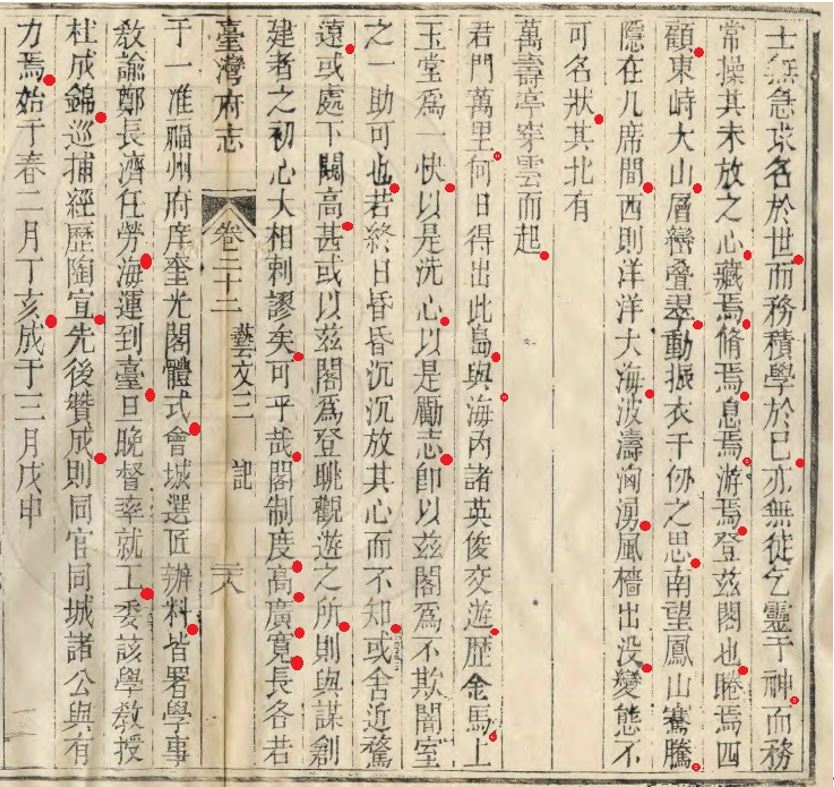 士無急求名於世而務積學於己亦無徒乞靈于神而務
常操其未放之心藏焉脩焉息焉游焉登茲閣也睠焉四
顧東峙大山層巒疊翠動振衣千仞之思南望鳳山騫騰
隱在几席間西則洋洋大海波濤洶湧風檣出没變態不
可名狀其北有
萬壽亭穿雲而起
君門萬里何日得出此島與海內諸英俊交遊歷金馬上
玉堂爲一快以是洗心以是勵志卽以茲閣爲不欺闇室
之一助可也若終日昏昏沉沉放其心而不知或舍近騖
遠或處下闚高甚或以茲閣爲登眺觀遊之所則與謀創
建者之初心大相剌謬矣可乎哉閣制度高廣寛長各若
臺灣府志 卷二十二 藝文三 記 二八
于一准福州府庠奎光閣體式會城選匠辦料皆署學事
敎諭鄭長濟任勞海運到臺旦晩督率就工委該學敎授
杜成錦巡捕經歷陶宣先後贊成則同官同城諸公與有
力焉始于春二月丁亥成于三月戊申